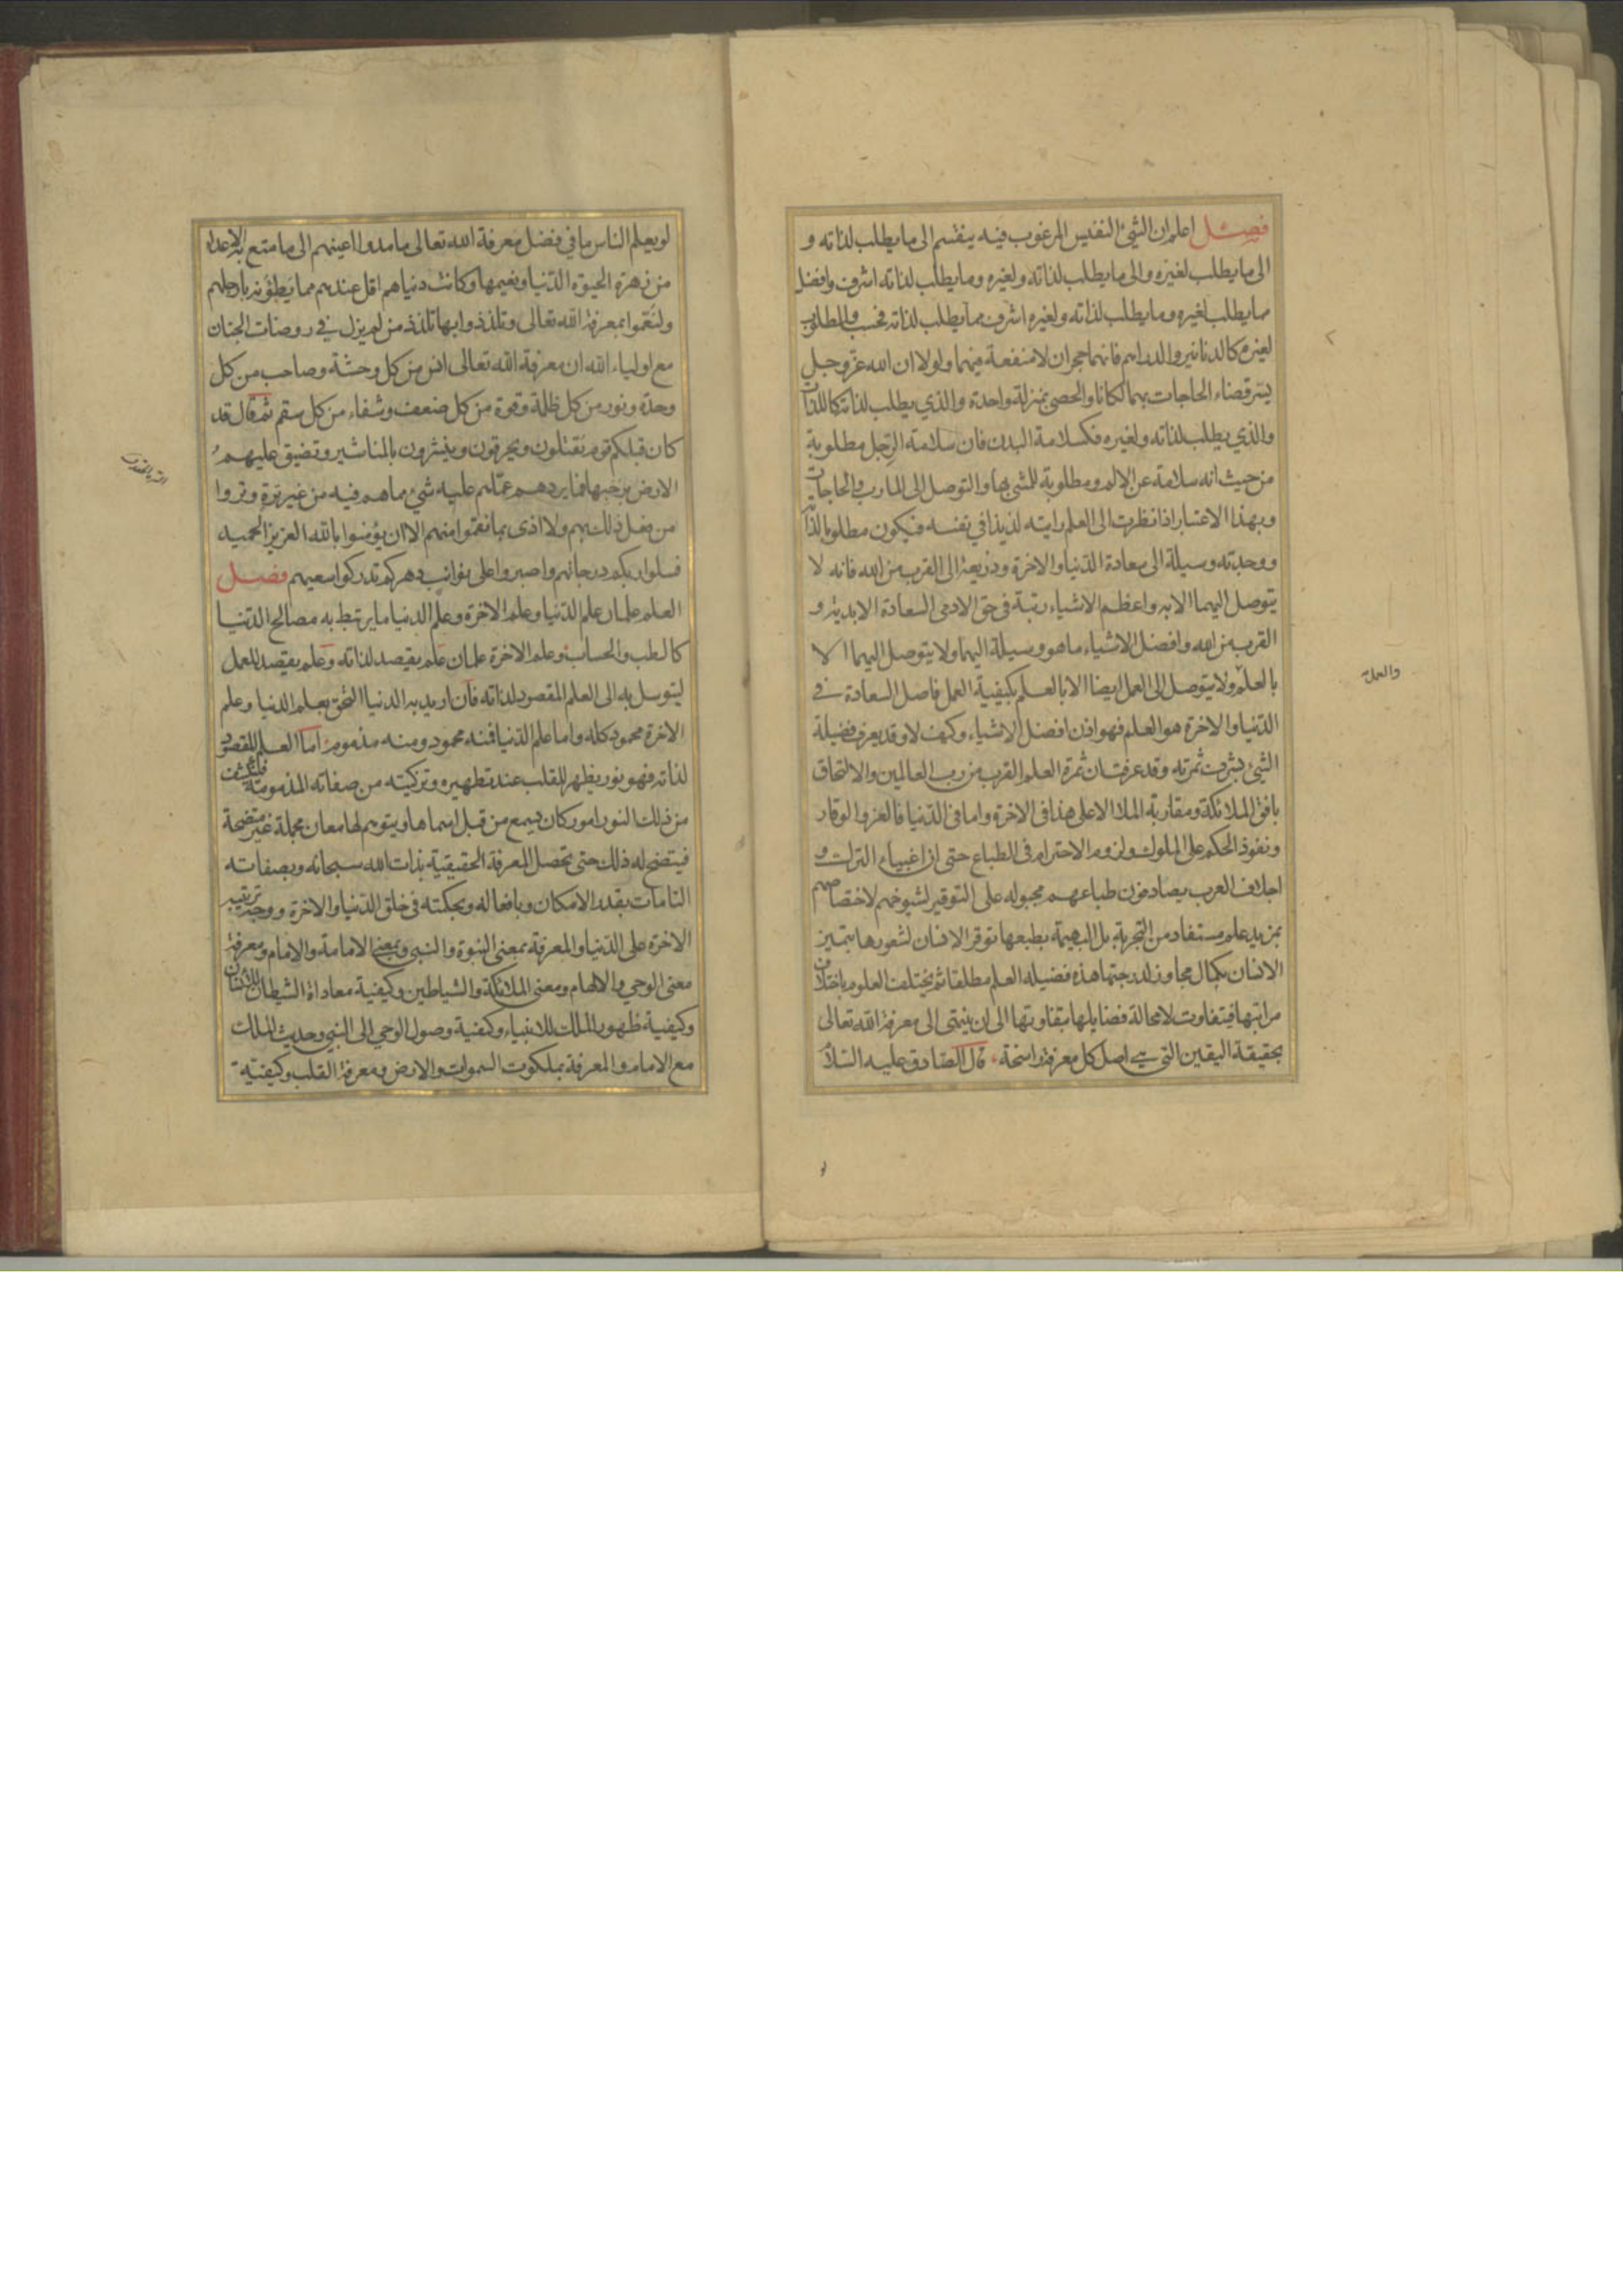 فصل اعلم ان الشئ النفيس المرغوب فيه ينقسم الى ما يطلب لذاته و
الى ما يطلب لغيره والى ما يطلب لذاته ولغيره وما يطلب لذاته اشرف وافضل
مما يطلب لغيره وما يطلب لذاته ولغيره اشرف مما يطلب لذاته فحسب والمطلوب
لغيره كالدنانير والدراهم فانهما حجران لا منفعة فيهما ولولا ان الله عز وجل
يسر قضاء الحاجات بهما لكانا والحصى بمنزلة واحدة والذي يطلب لذاته كاللذات
والذي يطلب لذاته ولغيره فكسلامة البدن فان سلامة الرجل مطلوبة
من حيث انه سلامة عن الالم ومطلوبة للمشي بها والتوصل الى المارب والحاجات
وبهذا الاعتبار اذا نظرت الى العلم رايته لذيذا في نفسه فيكون مطلوبا لذاته
ووجدته وسيلة الى سعادة الدنيا والاخرة وذريعة الى القرب من الله فانه لا
يتوصل اليهما الا به واعظم الاشياء رتبة في حق الادمى السعادة الابدية و
القرب من الله وافضل الاشياء ما هو وسيلة اليهما ولا يتوصل اليهما الا
بالعلم ولا يتوصل الى العمل ايضا الا بالعلم بكيفية العمل فاصل السعادة في
الدنيا والاخرة هو العلم فهو اذن افضل الاشياء وكيف لا وقد يعرف فضيلة
الشئ بشرف ثمرته وقد عرفت ان ثمرة العلم القرب من رب العالمين والالتحاق
بافق الملائكة ومقاربة الملا الاعلى هذا في الاخرة واما في الدنيا فالعز والوقار
ونفوذ الحكم على الملوك ولزوم الاحترام في الطباع حتى ان اغبياء الترك و
اجلاف العرب يصادفون طباعهم مجبوله على التوقير لشيوخهم لاختصاصهم
بمزيد علم مستفاد من التجربة بل البهيمة بطبعها توقر الانسان لشعورها بتميز
الانسان بكمال مجاوز لدرجتها هذه فضيلة العلم مطلقا ثم يختلف العلوم باختلاف
مراتبها فيتفاوت لا محالة فضايلها بتفاوتها الى ان ينتهى الى معرفة الله تعالى
بحقيقة اليقين التي هي اصل كل معرفة راسخة قال الصادق عليه السلام
والعمل
لو يعلم الناس ما في فضل معرفة الله تعالى ما مدوا اعينهم الى ما متع به الاعداء
من زهرة الحيوة الدنيا ونعيمها وكانت دنياهم اقل عندهم مما يطؤنه بارجلهم
ولنعموا بمعرفة الله تعالى وتلذذوا بها تلذذ من لم يزل في روضات الجنان
مع اولياء الله ان معرفة الله تعالى انس من كل وحشة وصاحب من كل
وحدة ونور من كل ظلمة وقوة من كل ضعف وشفاء من كل سقم ثم قال قد
كان قبلكم قوم يقتلون ويحرقون وينشرون بالمناشير وتضيق عليهم
الارض برحبها فما يردهم عما هم عليه شئ مما هم فيه من غير ترة وتروا
من فعل ذلك بهم ولا اذى بما نقموا منهم الا ان يؤمنوا بالله العزيز الحميد
فسلوا ربكم درجاتهم واصبروا على نوائب دهركم تدركوا سعيهم فصل
العلم علمان علم الدنيا وعلم الاخرة وعلم الدنيا ما يرتبط به مصالح الدنيا
كالطب والحساب وعلم الاخرة علمان علم يقصد لذاته وعلم يقصد للعمل
ليتوسل به الى العلم المقصود لذاته فان اريد به الدنيا التحق بعلم الدنيا وعلم
الاخرة محمود كله واما علم الدنيا فمنه محمود ومنه مذموم اما العلم المقصود
لذاته فهو نور يظهر للقلب عند تطهيره وتزكيته من صفاته المذمومة فينكشف
من ذلك النور امور كان يسمع من قبل اسماها ويتوهم لها معان مجملة غير متضحة
فيتضح له ذلك حتى تحصل المعرفة الحقيقية بذات الله سبحانه وبصفاته
التامات بقدر الامكان وبافعاله وبحكمته في خلق الدنيا والاخرة ووجه ترتيب
الاخرة على الدنيا والمعرفة بمعنى النبوة والنبي وبمعنى الامامة والامام ومعرفة
معنى الوحي والالهام ومعنى الملائكة والشياطين وكيفية معاداة الشيطان للانسان
وكيفية ظهور الملك للانبياء وكيفية وصول الوحي الى النبي وحديث الملك
مع الامام والمعرفة بملكوت السموات والارض ومعرفة القلب وكيفية